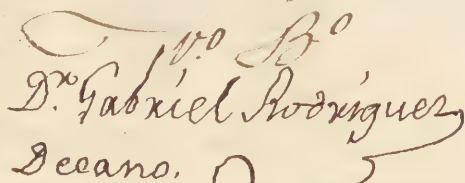 V.º B.º
D.r Gabriel Rodriguez
Decano.